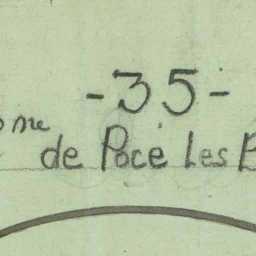 -35-
de Pocé les